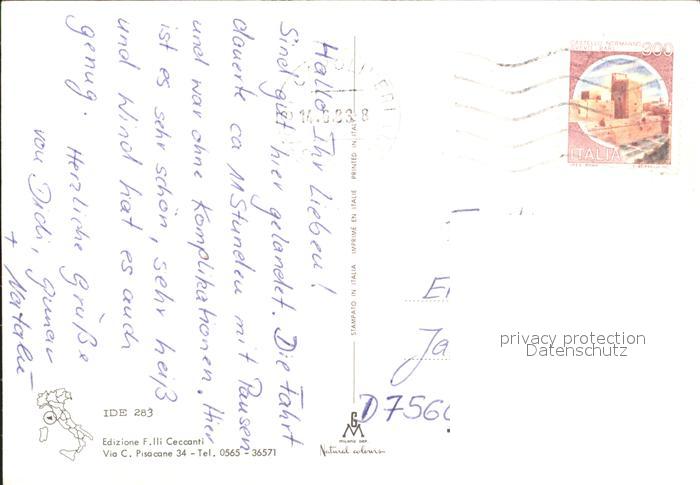 Hallo Ihr Lieben!
Sind gut hier gelandet. Die Fahrt
dauerte ca 11 Stunden mit Pausen
und war ohne Komplikationen. Hier
ist es sehr schön, sehr heiß
und Wind hat es auch
genug. Herzliche Grüße
von Didi,
+ Natalie
IDE 283
Edizione F.lli Ceccanti
Via C. Pisacane 34 - Tel. 0565 - 36571
STAMPATO IN ITALIA IMPRIMÉ EN ITALIE PRINTED IN ITALY
GM
MILANO DEP.
Natural colours
CASTELLO NORMANNO
SVEVO - BARI
300
ITALIA
Ja
D7566
privacy protection
Datenschutz